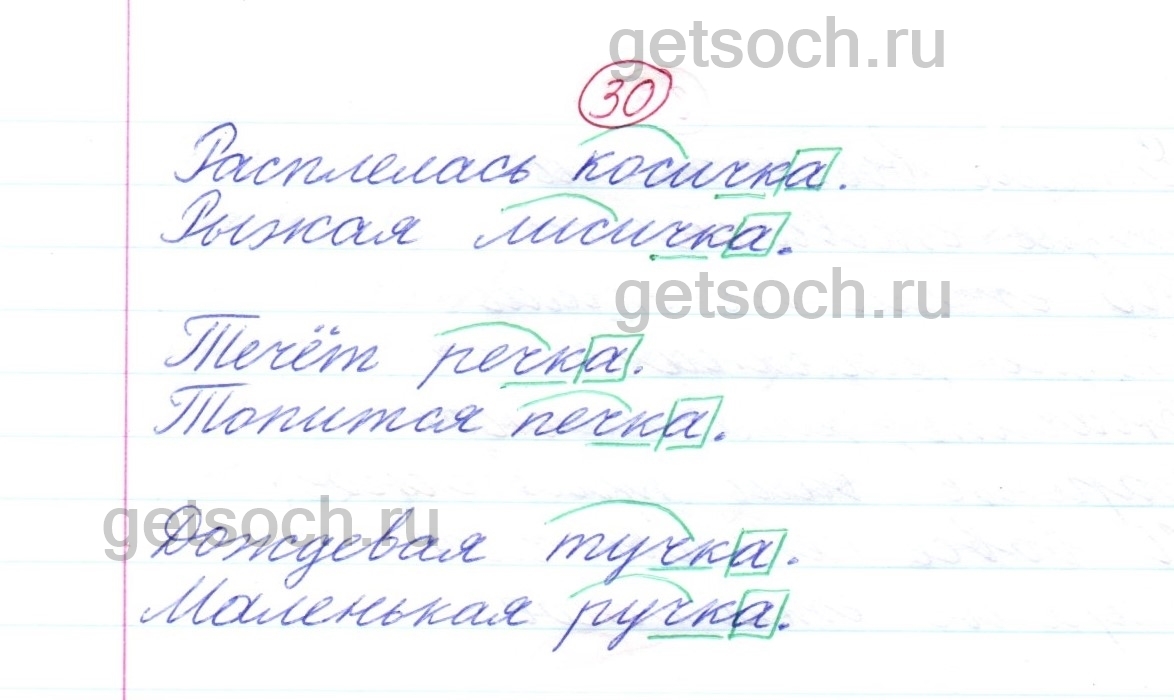 getsoch.ru
30
Расплелась косичка.
Рыжая лисичка.
getsoch.ru
Течёт речка.
Топится печка.
getsoch.ru
Дождевая тучка.
Маленькая ручка.